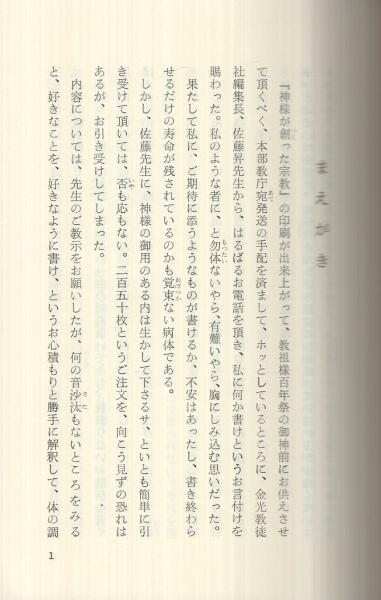 まえがき
『神様が創った宗教』の印刷が出来上がって、教祖様百年祭の御神前にお供えさせ
て頂くべく、本部教庁宛発送の手配を済まして、ホッとしているところに、金光教徒
社編集長、佐藤昇先生から、はるばるお電話を頂き、私に何か書けというお言付けを
賜わった。私のような者に、と勿体ないやら、有難いやら、胸にしみ込む思いだった。
果たして私に、ご期待に添うようなものが書けるか、不安はあったし、書き終わら
せるだけの寿命が残されているのかも覚束ない病体である。
しかし、佐藤先生に、神様の御用のある内は生かして下さるサ、といとも簡単に引
き受けて頂いては、否も応もない。二百五十枚というご注文を、向こう見ずの恐れは
あるが、お引き受けしてしまった。
内容については、先生のご教示をお願いしたが、何の音沙汰もないところをみる
と、好きなことを、好きなように書け、というお心積もりと勝手に解釈して、体の調
1